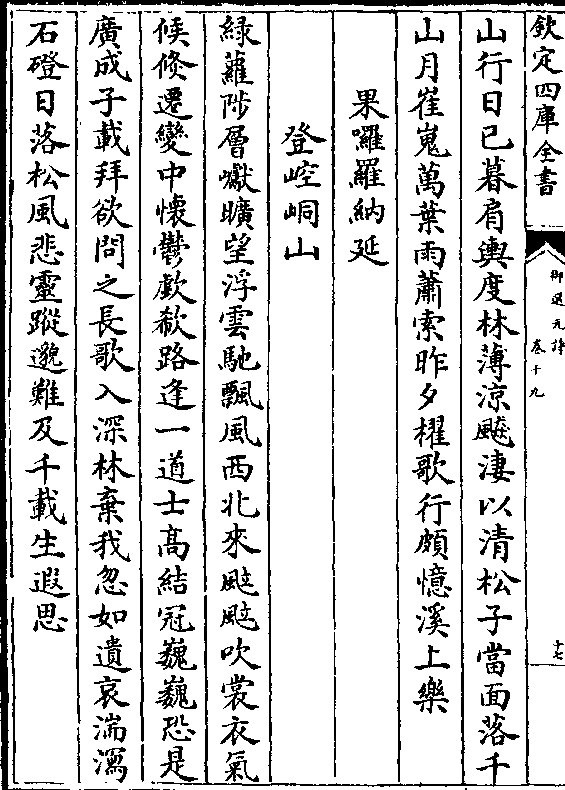 欽定四庫全書
御選元詩
卷十九
十七
山行日已暮肩輿度林薄涼飈淒以清松子當面落千
山月崔嵬萬葉雨蕭索昨夕櫂歌行頗憶溪上樂
果囉羅納延
登崆峒山
綠蘿陟層巘曠望浮雲馳飄風西北來颭颭吹裳衣氣
候倐遷變中懷鬱歔欷路逢一道士髙結冠巍巍恐是
廣成子載拜欲問之長歌入深林棄我忽如遺哀湍瀉
石磴日落松風悲靈蹤邈難及千載生遐思